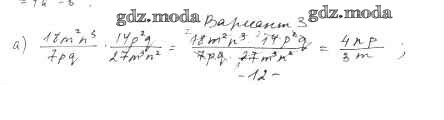 = 9a - 8 .
gdz.moda Вариант 3 gdz.moda
а) 18m²n³/7pq · 14p²q/27m³n² = 18m²n³ · 14p²q/7pq · 27m³n² = 4np/3m ;
-12-